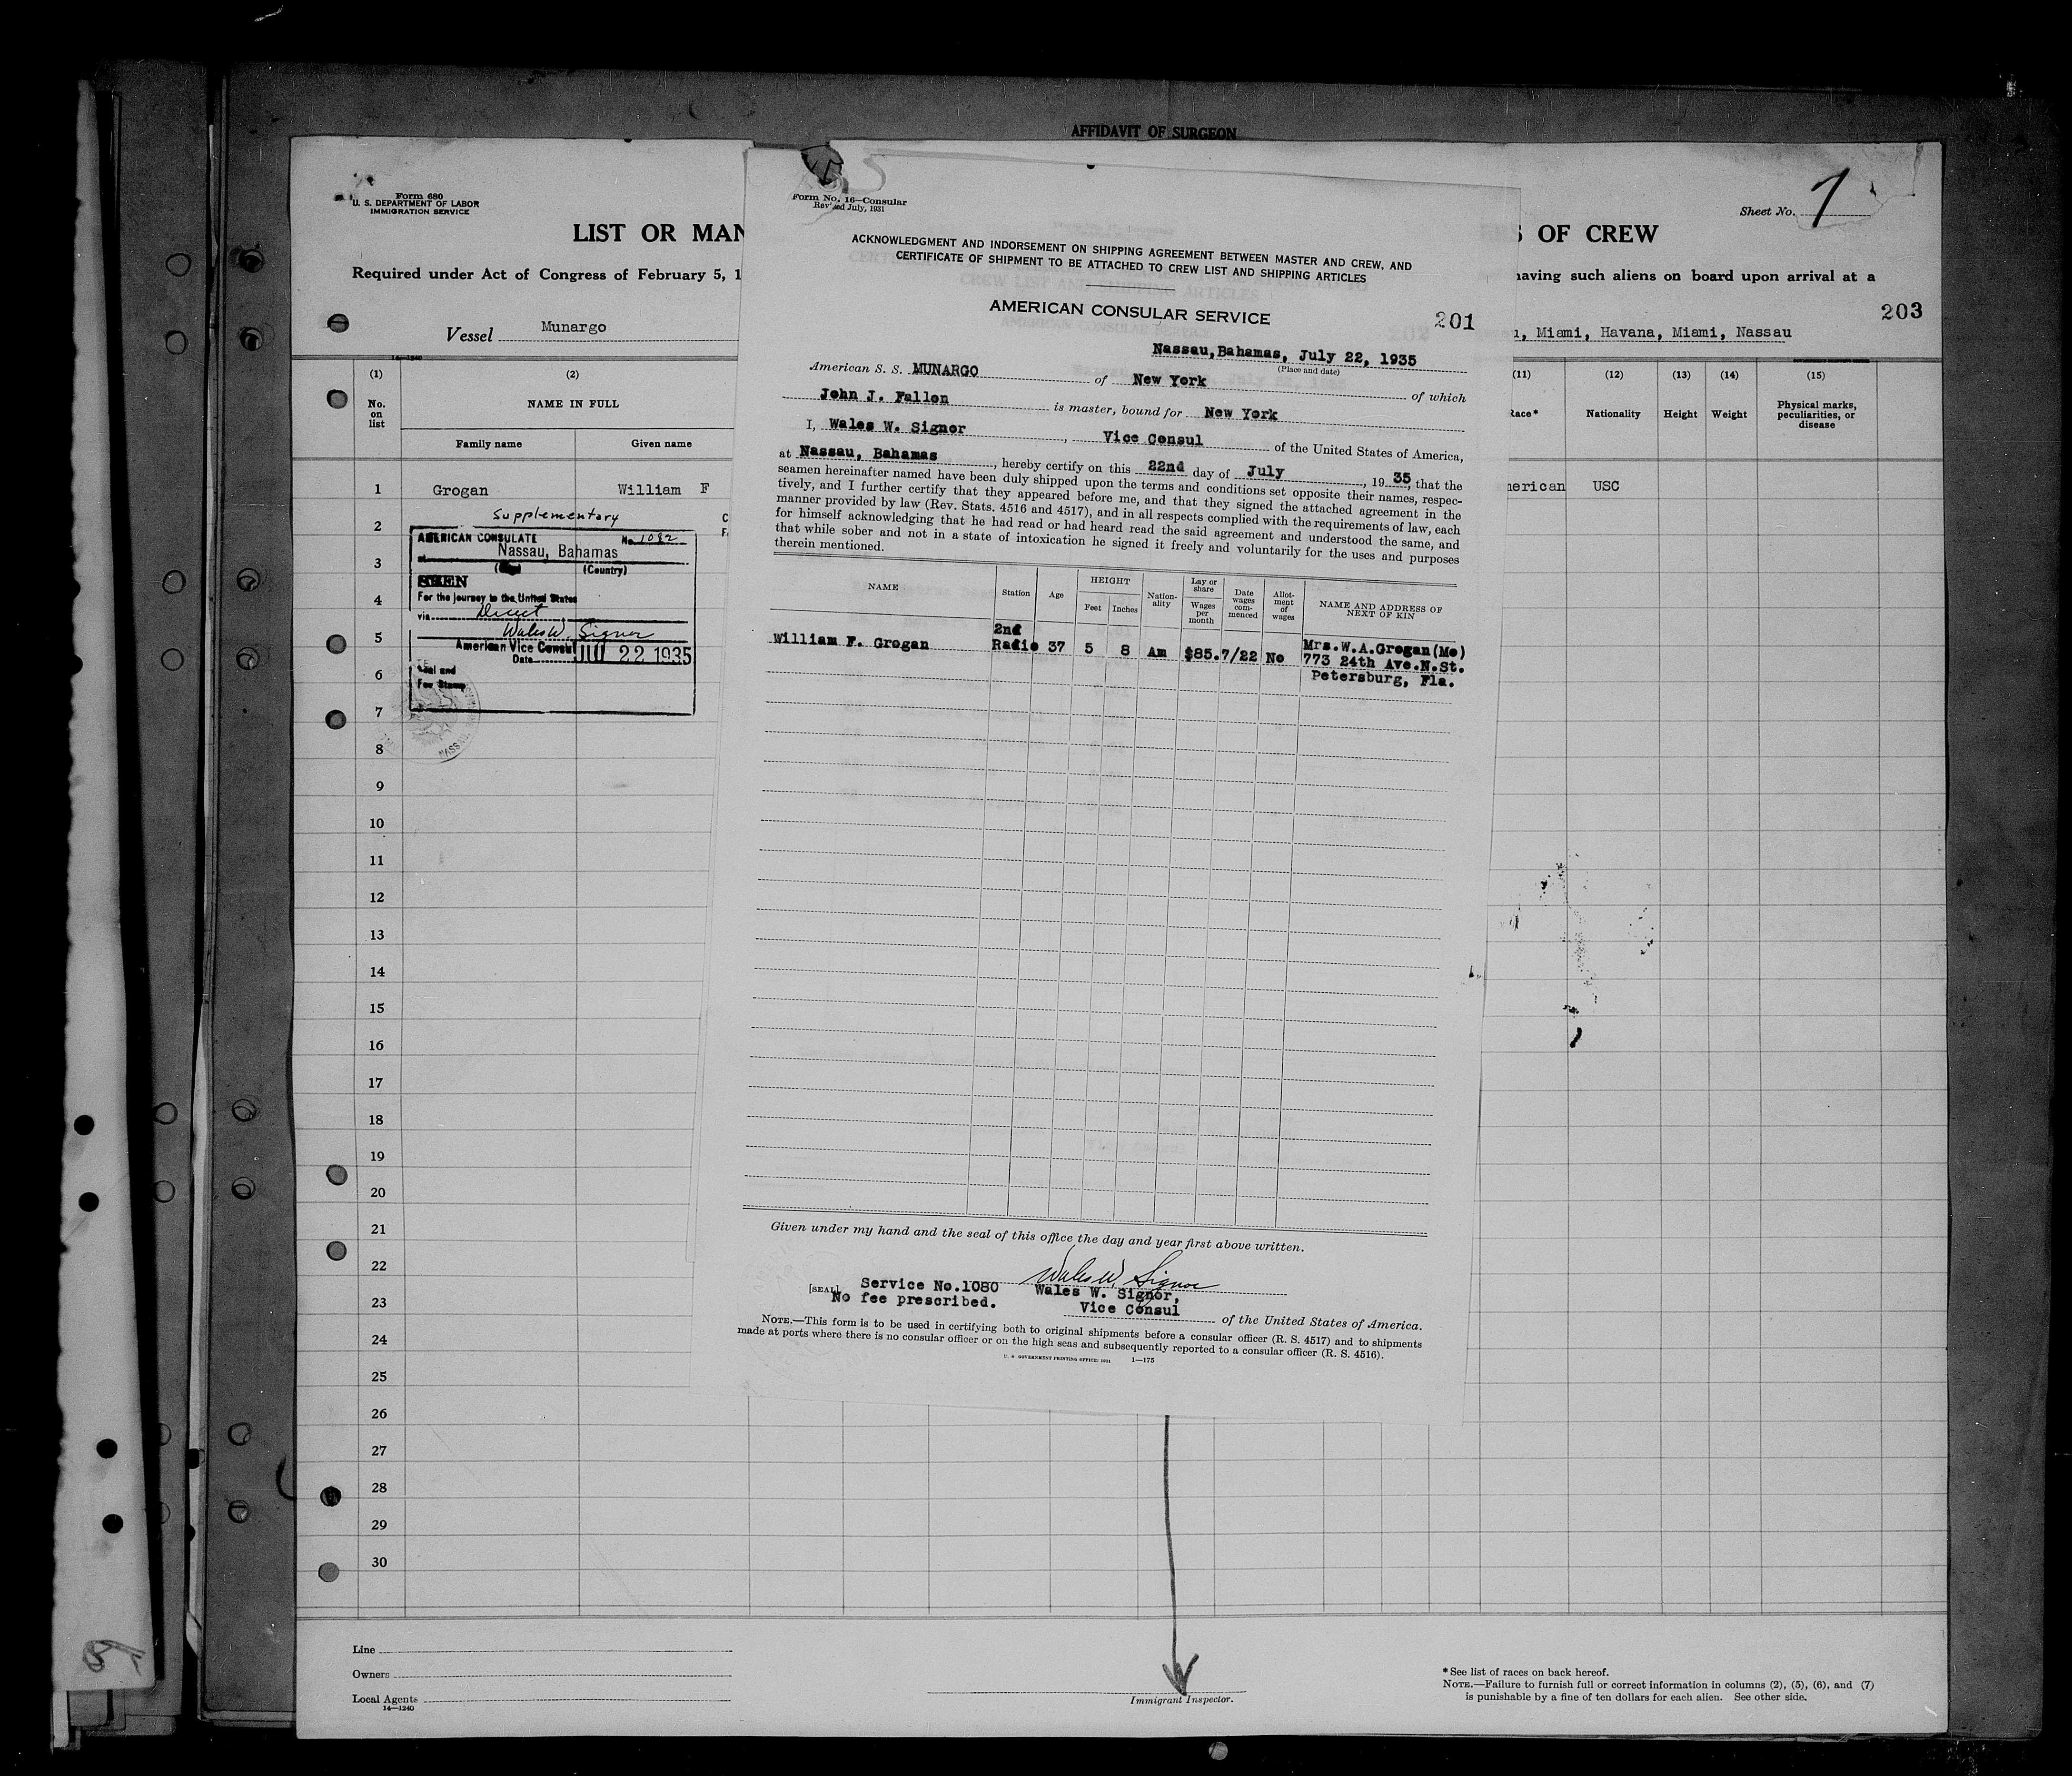 AFFIDAVIT OF SURGEON
Form 680
U. S. DEPARTMENT OF LABOR
IMMIGRATION SERVICE
LIST OR MAN
Required under Act of Congress of February 5, 1
Vessel Munargo
14—1240
(1)
No.
on
list
(2)
NAME IN FULL
Family name
Given name
1 Grogan William F
Supplementary
AMERICAN CONSULATE No. 1082
Nassau, Bahamas
(Country)
SEEN
For the journey to the United States
via Direct
Wales W. Signor
American Vice Consul
Date JUL 22 1935
Seal and
Fee Stamp
2
3
4
5
6
7
8
9
10
11
12
13
14
15
16
17
18
19
20
21
22
23
24
25
26
27
28
29
30
Line
Owners
Local Agents
14—1240
Form No. 16—Consular
Revised July, 1931
ACKNOWLEDGMENT AND INDORSEMENT ON SHIPPING AGREEMENT BETWEEN MASTER AND CREW, AND
CERTIFICATE OF SHIPMENT TO BE ATTACHED TO CREW LIST AND SHIPPING ARTICLES
AMERICAN CONSULAR SERVICE
201
Nassau, Bahamas, July 22, 1935
(Place and date)
American S. S. MUNARGO of New York of which
John J. Fallon is master, bound for New York
I, Wales W. Signor, Vice Consul of the United States of America,
at Nassau, Bahamas, hereby certify on this 22nd day of July, 19 35, that the
seamen hereinafter named have been duly shipped upon the terms and conditions set opposite their names, respec-
tively, and I further certify that they appeared before me, and that they signed the attached agreement in the
manner provided by law (Rev. Stats. 4516 and 4517), and in all respects complied with the requirements of law, each
for himself acknowledging that he had read or had heard read the said agreement and understood the same, and
that while sober and not in a state of intoxication he signed it freely and voluntarily for the uses and purposes
therein mentioned.
NAME
Station
Age
HEIGHT
Feet
Inches
Nation-
ality
Lay or
share
Wages
per
month
Date
wages
com-
menced
Allot-
ment
of
wages
NAME AND ADDRESS OF
NEXT OF KIN
William F. Grogan 2nd Radio 37 5 8 Am $85. 7/22 No
Mrs.W.A.Grogan(Mo)
773 24th Ave.N.St.
Petersburg, Fla.
Given under my hand and the seal of this office the day and year first above written.
Wales W. Signor
[SEAL] Service No.1080 Wales W. Signor,
No fee prescribed. Vice Consul
of the United States of America.
NOTE.—This form is to be used in certifying both to original shipments before a consular officer (R. S. 4517) and to shipments
made at ports where there is no consular officer or on the high seas and subsequently reported to a consular officer (R. S. 4516).
U. S. GOVERNMENT PRINTING OFFICE: 1931 1—175
Immigrant Inspector.
Sheet No. 7
S OF CREW
having such aliens on board upon arrival at a
203
, Miami, Havana, Miami, Nassau
(11)
Race*
(12)
Nationality
(13)
Height
(14)
Weight
(15)
Physical marks,
peculiarities, or
disease
merican USC
* See list of races on back hereof.
NOTE.—Failure to furnish full or correct information in columns (2), (5), (6), and (7)
is punishable by a fine of ten dollars for each alien. See other side.